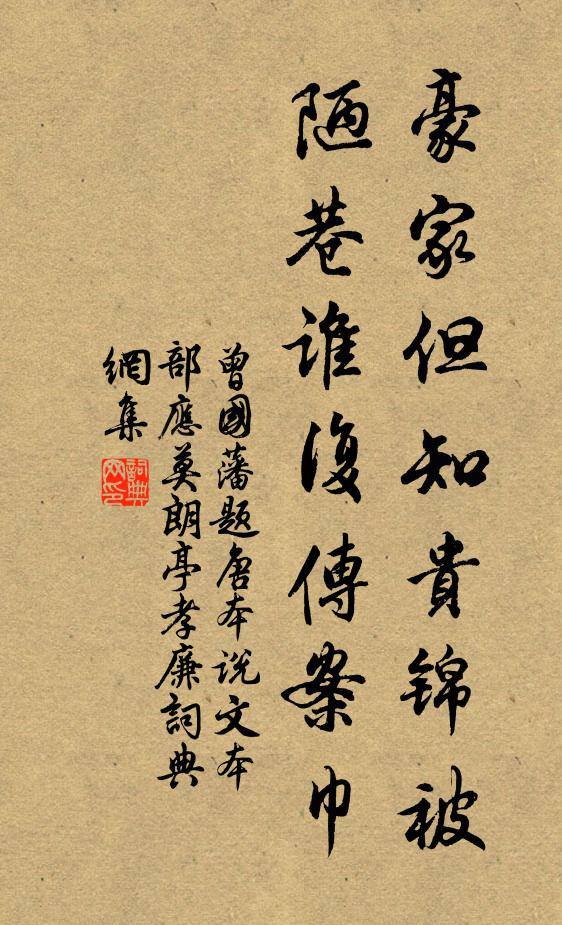 豪家但知貴錦被
陋巷誰復傳絮巾
曾國藩題唐本说文本
部應莫朗亭孝廉詞典
網集
詞典
网印